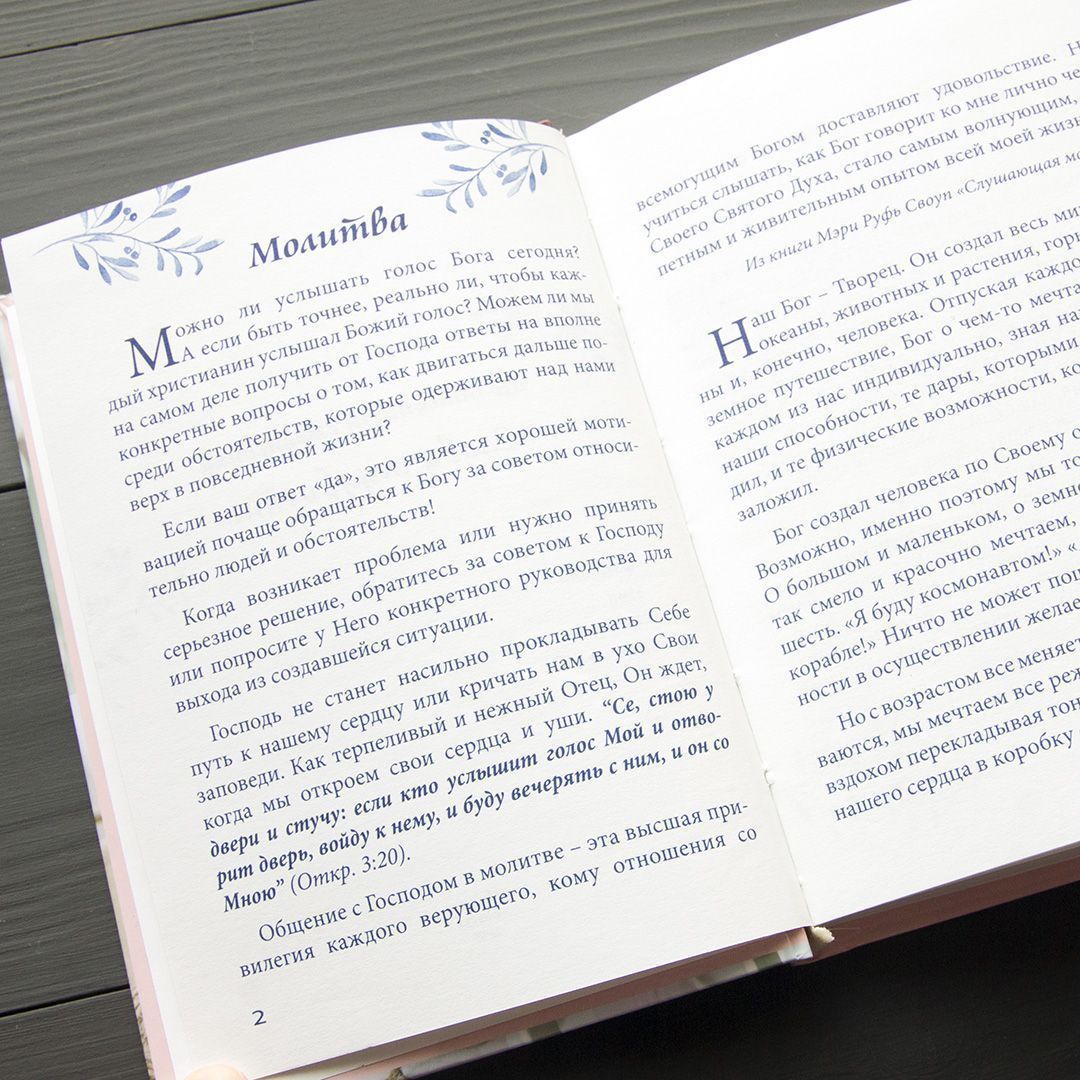 Молитва
Можно ли услышать голос Бога сегодня?
А если быть точнее, реально ли, чтобы каж-
дый христианин услышал Божий голос? Можем ли мы
на самом деле получить от Господа ответы на вполне
конкретные вопросы о том, как двигаться дальше по-
среди обстоятельств, которые одерживают над нами
верх в повседневной жизни?
Если ваш ответ «да», это является хорошей моти-
вацией почаще обращаться к Богу за советом относи-
тельно людей и обстоятельств!
Когда возникает проблема или нужно принять
серьезное решение, обратитесь за советом к Господу
или попросите у Него конкретного руководства для
выхода из создавшейся ситуации.
Господь не станет насильно прокладывать Себе
путь к нашему сердцу или кричать нам в ухо Свои
заповеди. Как терпеливый и нежный Отец, Он ждет,
когда мы откроем свои сердца и уши. “Се, стою у
двери и стучу: если кто услышит голос Мой и отво-
рит дверь, войду к нему, и буду вечерять с ним, и он со
Мною” (Откр. 3:20).
Общение с Господом в молитве – эта высшая при-
вилегия каждого верующего, кому отношения со
2
всемогущим Богом доставляют удовольствие.
учиться слышать, как Бог говорит ко мне лично
Своего Святого Духа, стало самым волнующим,
петным и живительным опытом всей моей
Из книги Мэри Руфь Своуп «Слушающая
Наш Бог – Творец. Он создал весь
океаны, животных и растения,
ны и, конечно, человека. Отпуская
земное путешествие, Бог о чем-то
каждом из нас индивидуально, зная
наши способности, те дары, которыми
дил, и те физические возможности,
заложил.
Бог создал человека по Своему
Возможно, именно поэтому мы
О большом и маленьком, о
так смело и красочно мечтаем,
шесть. «Я буду космонавтом!» «
корабле!» Ничто не может
ности в осуществлении
Но с возрастом все
ваются, мы мечтаем все
вздохом перекладывая
нашего сердца в коробку